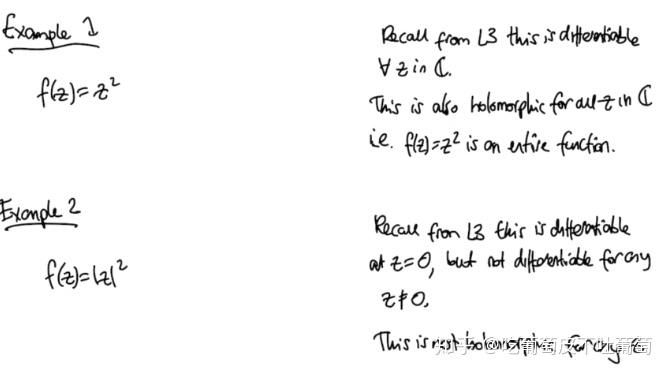 Example 1
f(z)=z²
Recall from L3 this is differentiable
∀ z in ℂ.
This is also holomorphic for all z in ℂ
i.e. f(z)=z² is an entire function.
Example 2
f(z)=|z|²
Recall from L3 this is differentiable
at z=0, but not differentiable for any
z≠0.
This is not holomorphic for any z
知乎 @吃葡萄皮不吐葡萄